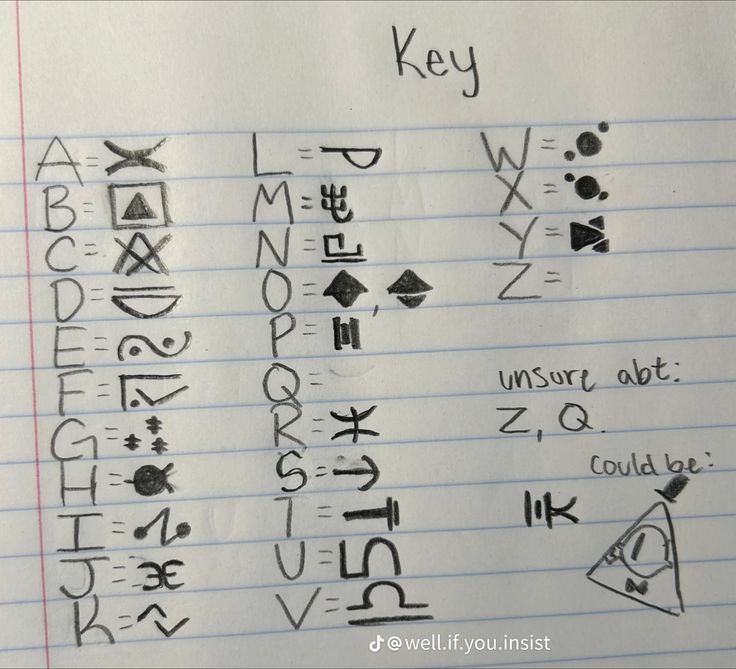 Key
A=
B=
C=
D=
E=
F=
G=
H=
I=
J=
K=
L=
M=
N=
O= ,
P=
Q=
R=
S=
T=
U=
V=
W=
X=
Y=
Z=
unsure abt:
Z, Q.
could be:
@well.if.you.insist